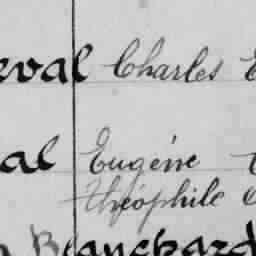 eval Charles E
al Eugéne
théophile
Blanchard